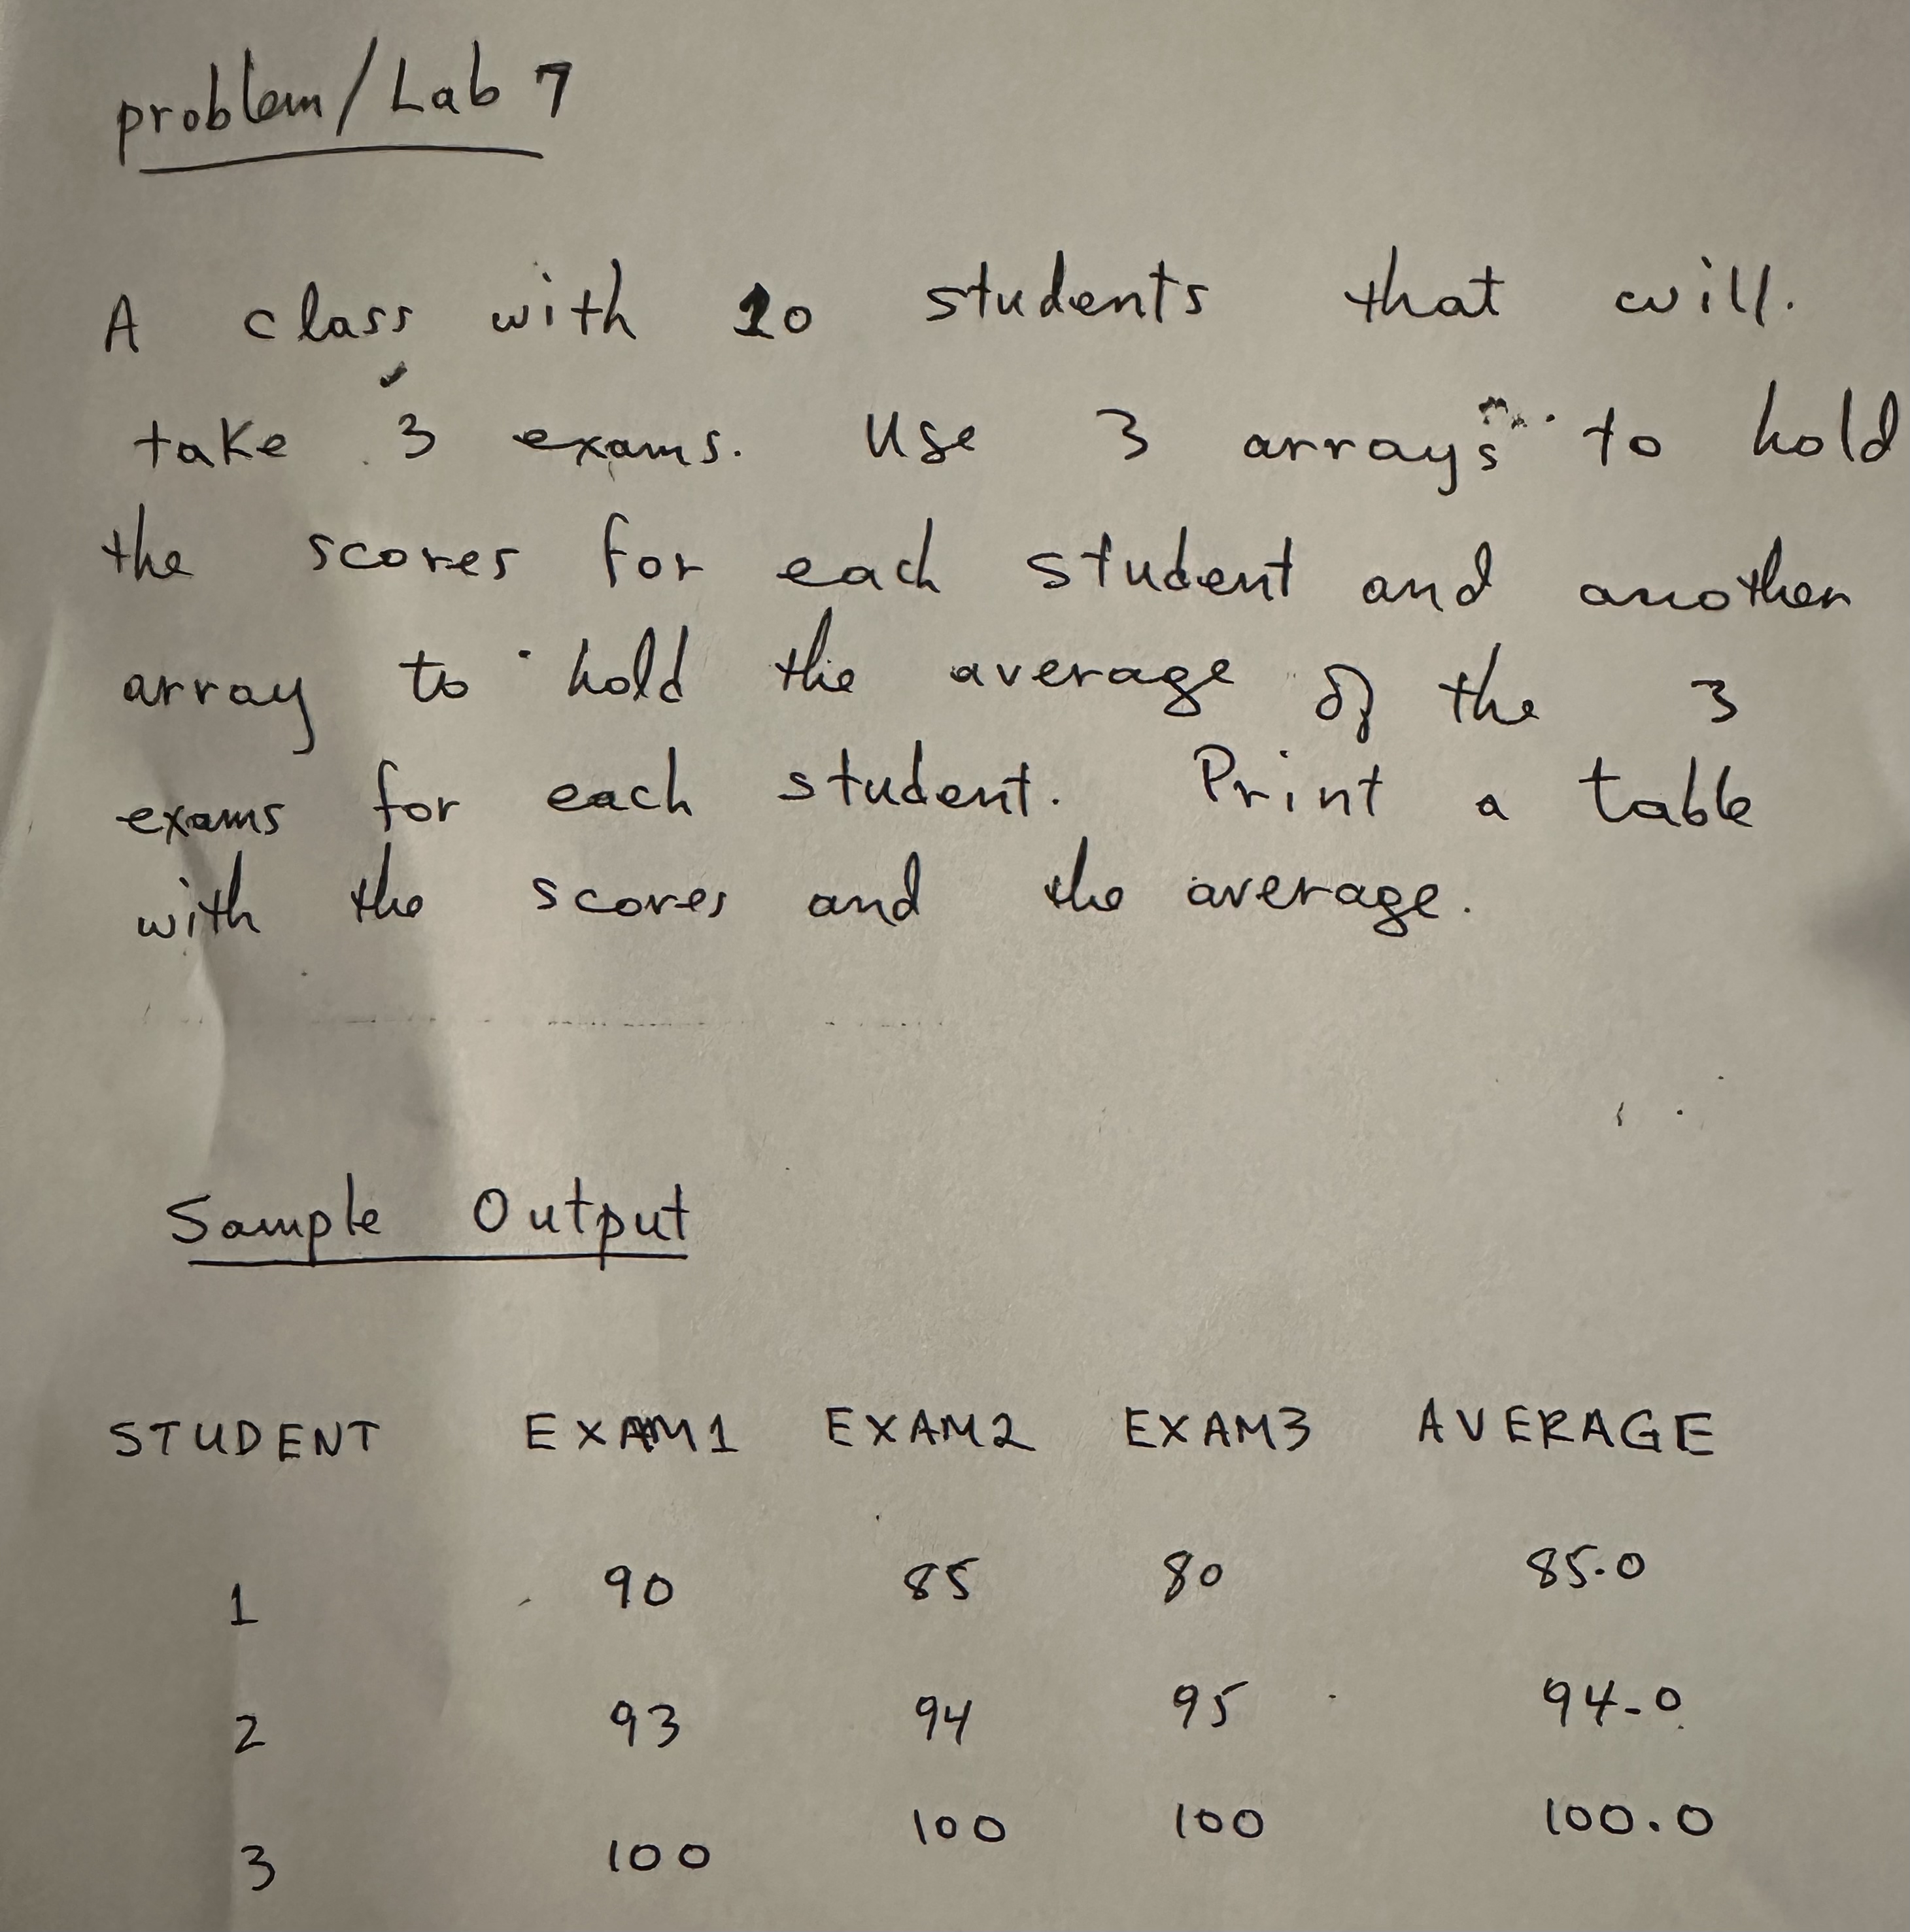 problem/Lab 7
A class with 10 students that will.
take 3 exams. Use 3 arrays to hold
the scores for each student and another
array to hold the average of the 3
exams for each student. Print a table
with the scores and the average.
Sample Output
STUDENT EXAM1 EXAM2 EXAM3 AVERAGE
1 90 85 80 85.0
2 93 94 95 94.0
3 100 100 100 100.0